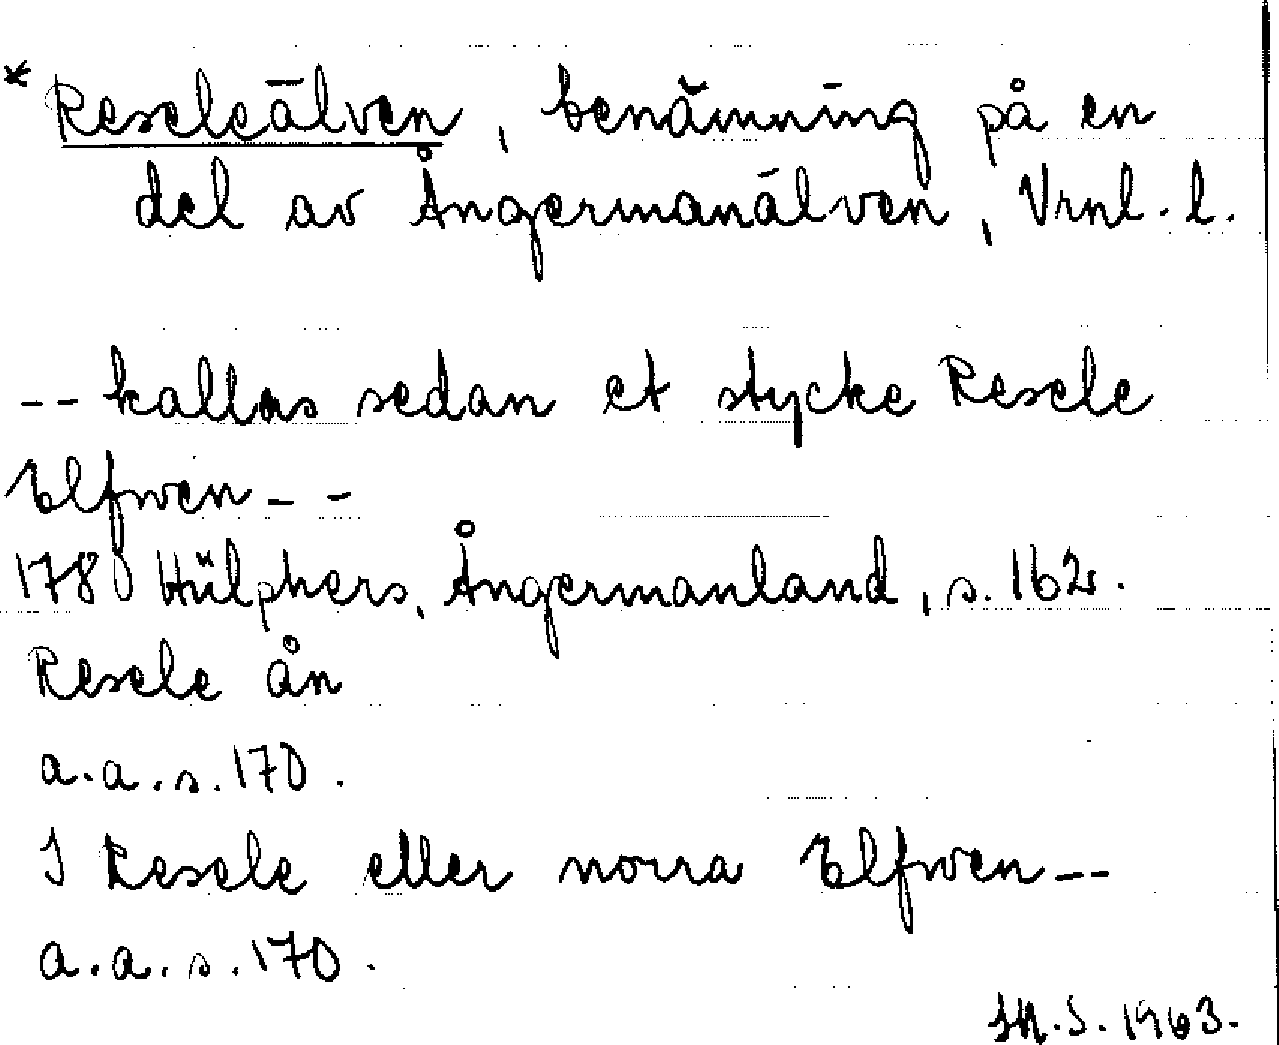 * Reseleälven, benämning på en
del av Ångermanälven, Vrml. l.
-- kallas sedan et stycke Resele
Elfwen --
1780 Hülphers, Ångermanland, s. 162.
Resele ån
a.a.s. 170.
I Resele eller norra Elfwen --
a.a.s. 170.
S. 1963.